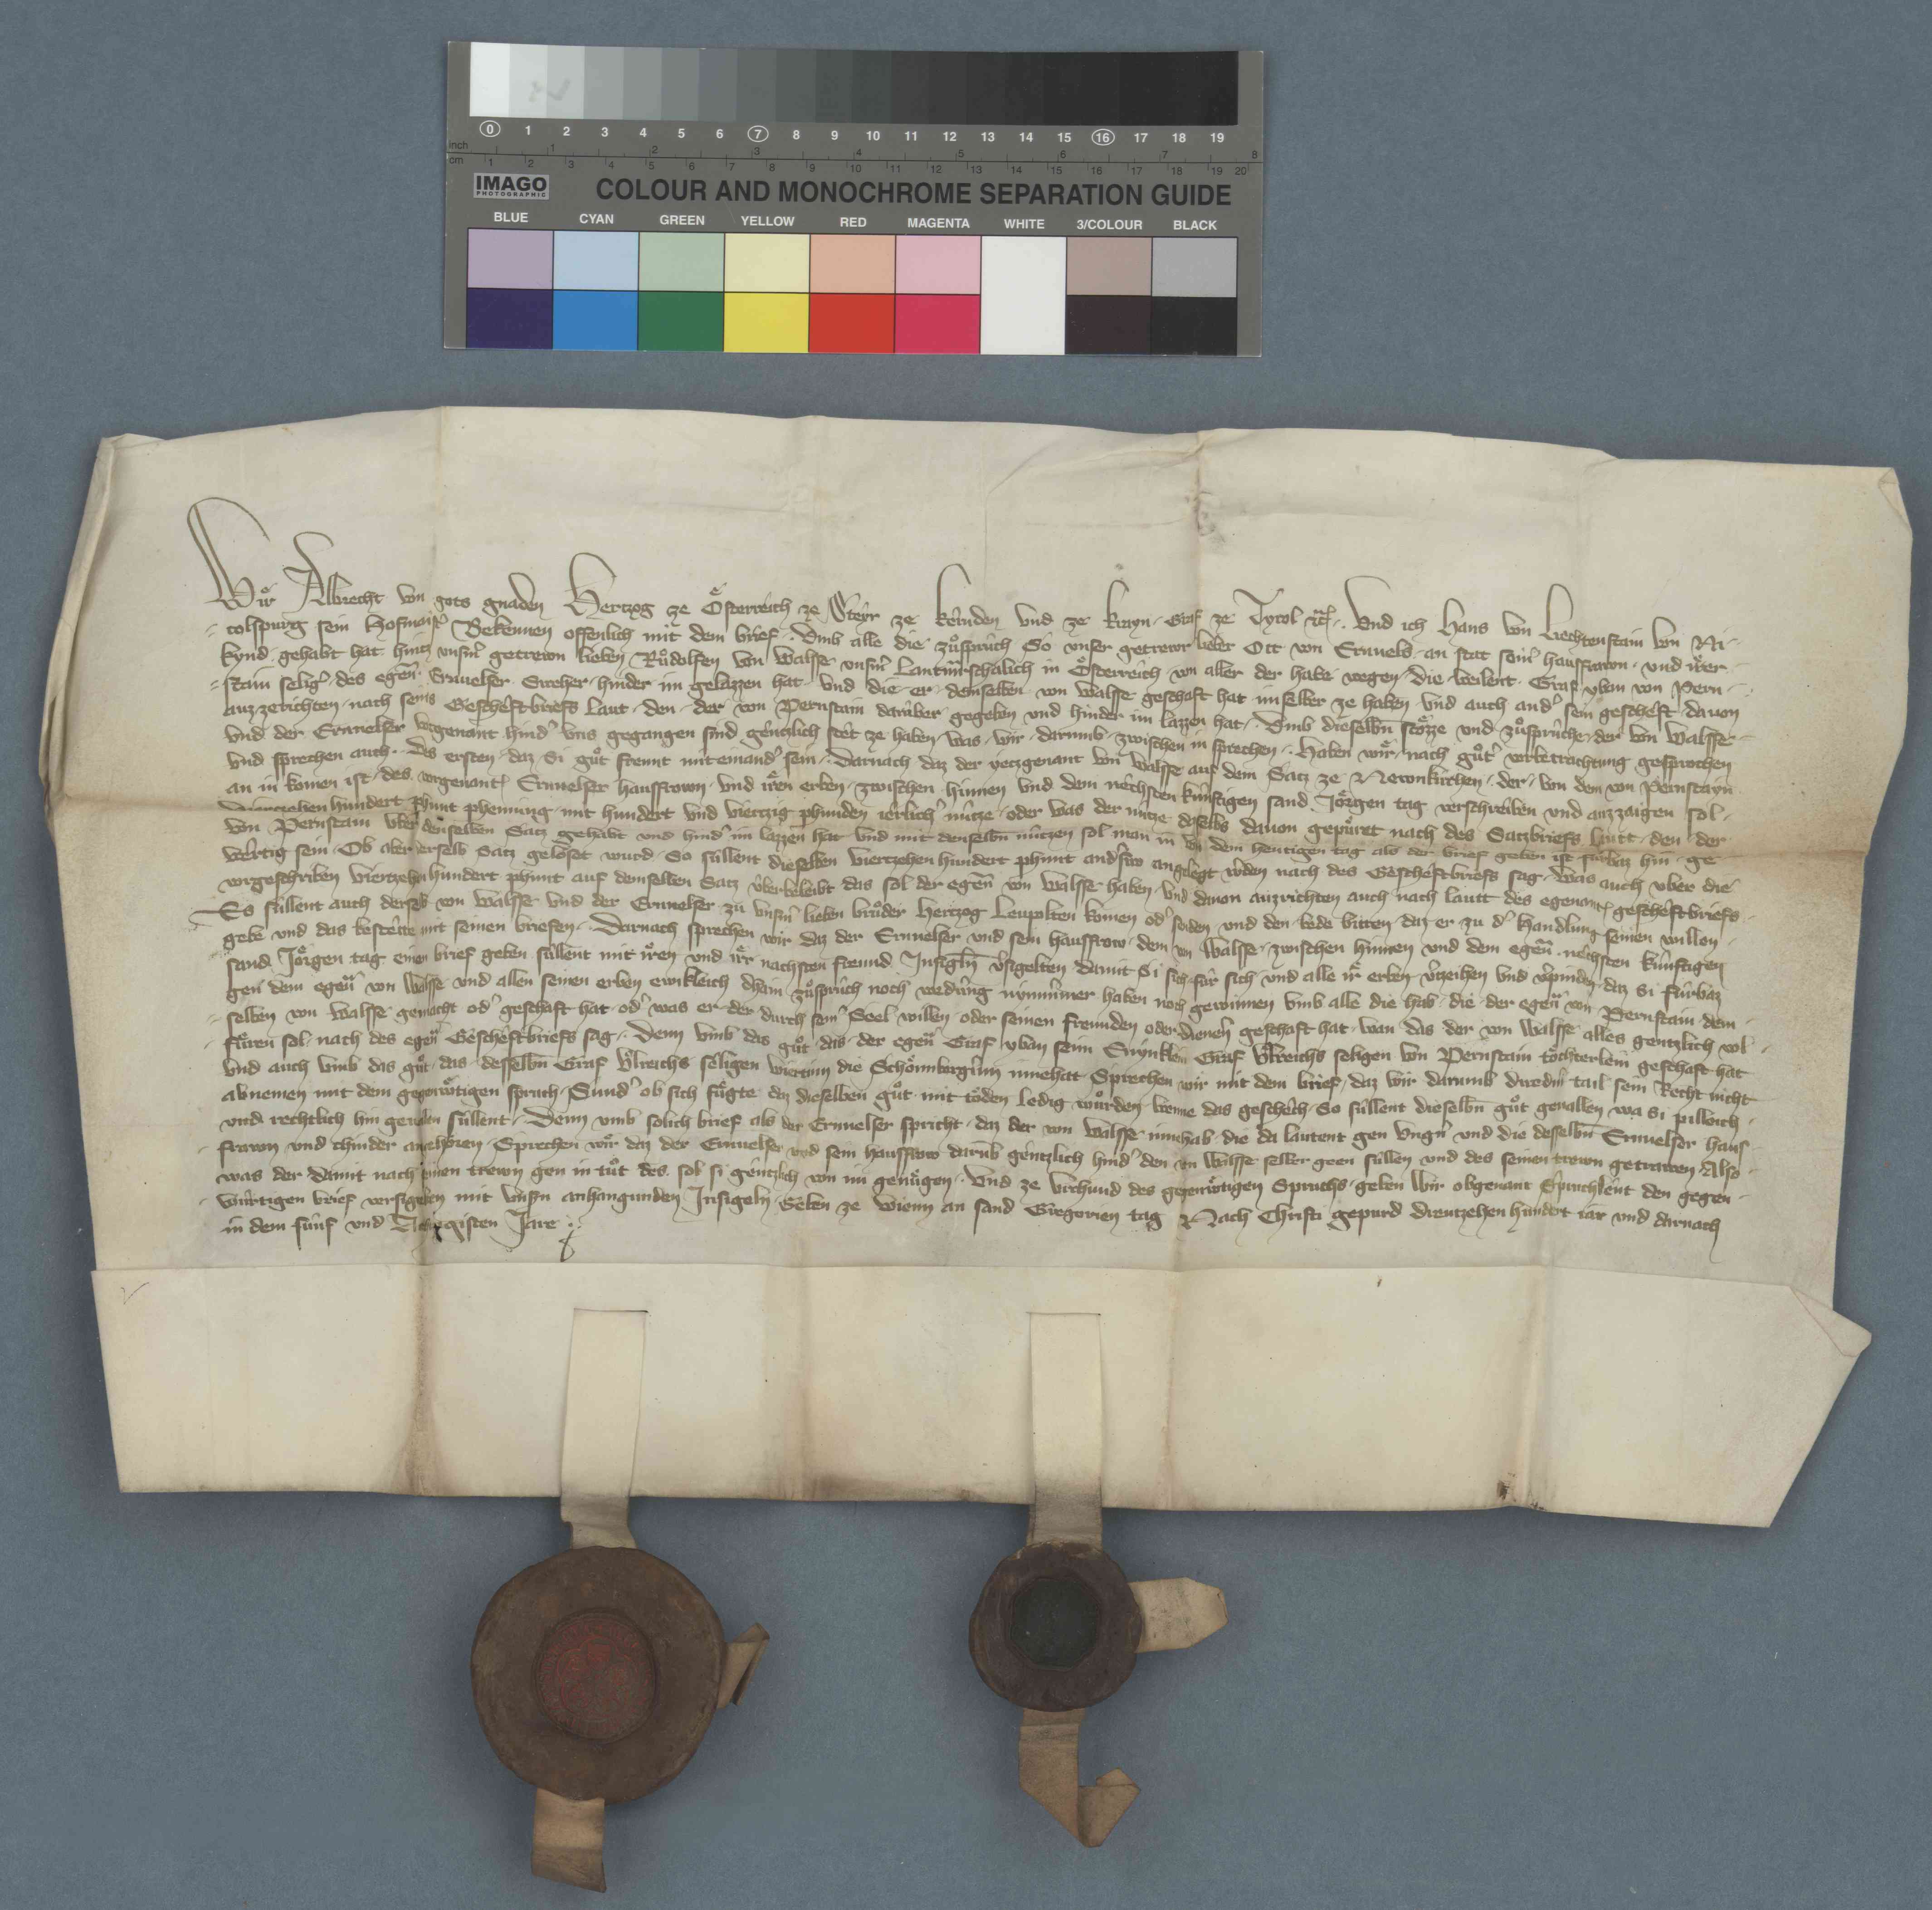 0 1 2 3 4 5 6 7 8 9 10 11 12 13 14 15 16 17 18 19
inch 1 2 3 4 5 6 7 8
cm 1 2 3 4 5 6 7 8 9 10 11 12 13 14 15 16 17 18 19 20
IMAGO
PHOTOGRAPHIC
COLOUR AND MONOCHROME SEPARATION GUIDE
BLUE CYAN GREEN YELLOW RED MAGENTA WHITE 3/COLOUR BLACK
Wir Albrecht von gots gnaden Hertzog ze Österreich ze Steyr ze Kernden vnd ze Krayn Graf ze Tyrol etc. Vnd ich Hans von Liechtenstain von Ni-
colspurg sein Hofmaister Bekennen offenlich mit dem brief. Vmb alle die zůsprüch So vnser getrewr lieber Ott von Ernuels an stat seinr hausfrown vnd irer
kynd gehabt hat hintz vnserm getrewn lieben Růdolfen von Walsse vnserm Lantmarschalich in Österreich von aller der habe wegen die weilent Graf yban von Pern-
stain seliger des egenn Ernuelser Sweher hinder im gelazzen hat vnd die er demselben von walsse geschaft hat imselber ze haben vnd auch ander sein gescheft dauon
auzzerichten nach seins Gescheftbriefs laut den der von Pernstain darüber gegeben vnd hinder im lazzen hat. Vmb dieselbn stözze vnd zůsprüche der von Walsse
vnd der Ernuelser vorgenant hinder vns gegangen sind gentzlich stet ze haben was wir darumb zwischen in sprechen. Haben wir nach gůter vorbetrachtung gesprochen
vnd sprechen auch. Des ersten daz Si gůt frewnt miteinander sein. Darnach daz der yetzgenant von Walsse auf dem Satz ze Newnkirchen der von dem von Pernstayn
an in komen ist des vorgenant Ernuelser hausfrown vnd iren erben zwischen hinnen vnd dem nechsten künftigen sand Jörgen tag verschreiben vnd auzzaigen sol
viertzehen hundert phunt phenning mit hundert vnd viertzig phunden ierlicher nütze oder was der nütze daselbs dauon gepüret nach des Satzbriefs lautt den der
von Pernstain vber denselben Satz gehabt vnd hinder im lazzen hat vnd mit denselbn nützen sol man in von dem heutigen tag als der brief geben ist fürbaz hin ge-
wertig sein. Ob aber erselb Satz gelöset wurd So süllent dieselben viertzehen hundert phunt anderswo angelegt werden nach des Gescheftbriefs sag. Was auch vber die
vorgeschriben viertzehnhundert phunt auf demselben Satz vberbeleibt das sol der egenn von Walsse haben vnd dauon auzrichten auch nach lautt des egenant gescheftbriefs
Es süllent auch derselb von Walsse vnd der Ernuelser zu vnserm lieben brůder Hertzog Leupolten komen oder senden vnd den bede bitten daz er zu der handlung seinen willen
gebe vnd das bestette mit seinen briefen. Darnach sprechen wir daz der Ernuelser vnd sein hausfrow dem von Walsse zwischen hinnen vnd dem egenn nechsten künftigen
sand Jörgen tag einen brief geben süllent mit iren vnd irr nachsten freund Insigeln versigelten damit Si sich für sich vnd alle ir erben verzeihen vnd verpinden daz si fürbaz
gen dem egenn von Walsse vnd allen seinen erben ewikleich dhain zůspruch noch vodrung nymmer haben noch gewinnen vmb alle die hab die der egenn von Pernstain dem-
selben von walsse gemacht oder geschaft hat oder was er der durch seinr Seel willen oder seinen freunden oder dienern geschaft hat wan das der von Walsse alles gentzlich vol-
füren sol nach des egenn Gescheftbriefs sag. Denn vmb das gůt das der egenn Graf yban seim Enynklein Graf Vlreichs seligen von Pernstain töchterlein geschaft hat
vnd auch vmb das gůt das desselbn Graf Vlreichs seligen wirtinn die Schönnbergerinn innehat Sprechen wir mit dem brief daz wir darumb dwederm tail sein Recht nicht
abnemen mit dem gegenwörtigen spruch. Sunder ob sich fügte daz dieselben gůt mit töden ledig würden wenne das geschech So süllent dieselbn gůt geuallen wa si pilleich
vnd rechtlich hin geuallen süllent. Denn vmb solich brief als der Ernuelser spricht daz der von Walsse innehab die da lautent gen Vngern vnd die desselbn Ernuelser haus-
frawn vnd chinder angehören Sprechen wir daz der Ernuelser vnd sein hausfrow darumb gentzlich hinder den von Walsse selber geen süllen vnd des seinen trewn getrawen. Also
was der damit nach seinen trewn gen in tůt des sol si gentzlich von im genügen. Vnd ze vrchund des gegenwörtigen Spruchs geben wir obgenant Spruchleut den gegen-
würtigen brief versigelten mit vnsern anhangunden Insigeln. Geben ze Wienn an sand Gregorien tag Nach Christi gepurd dreutzehen hundert iar vnd darnach
in dem fünf vnd Achtzgisten Jare